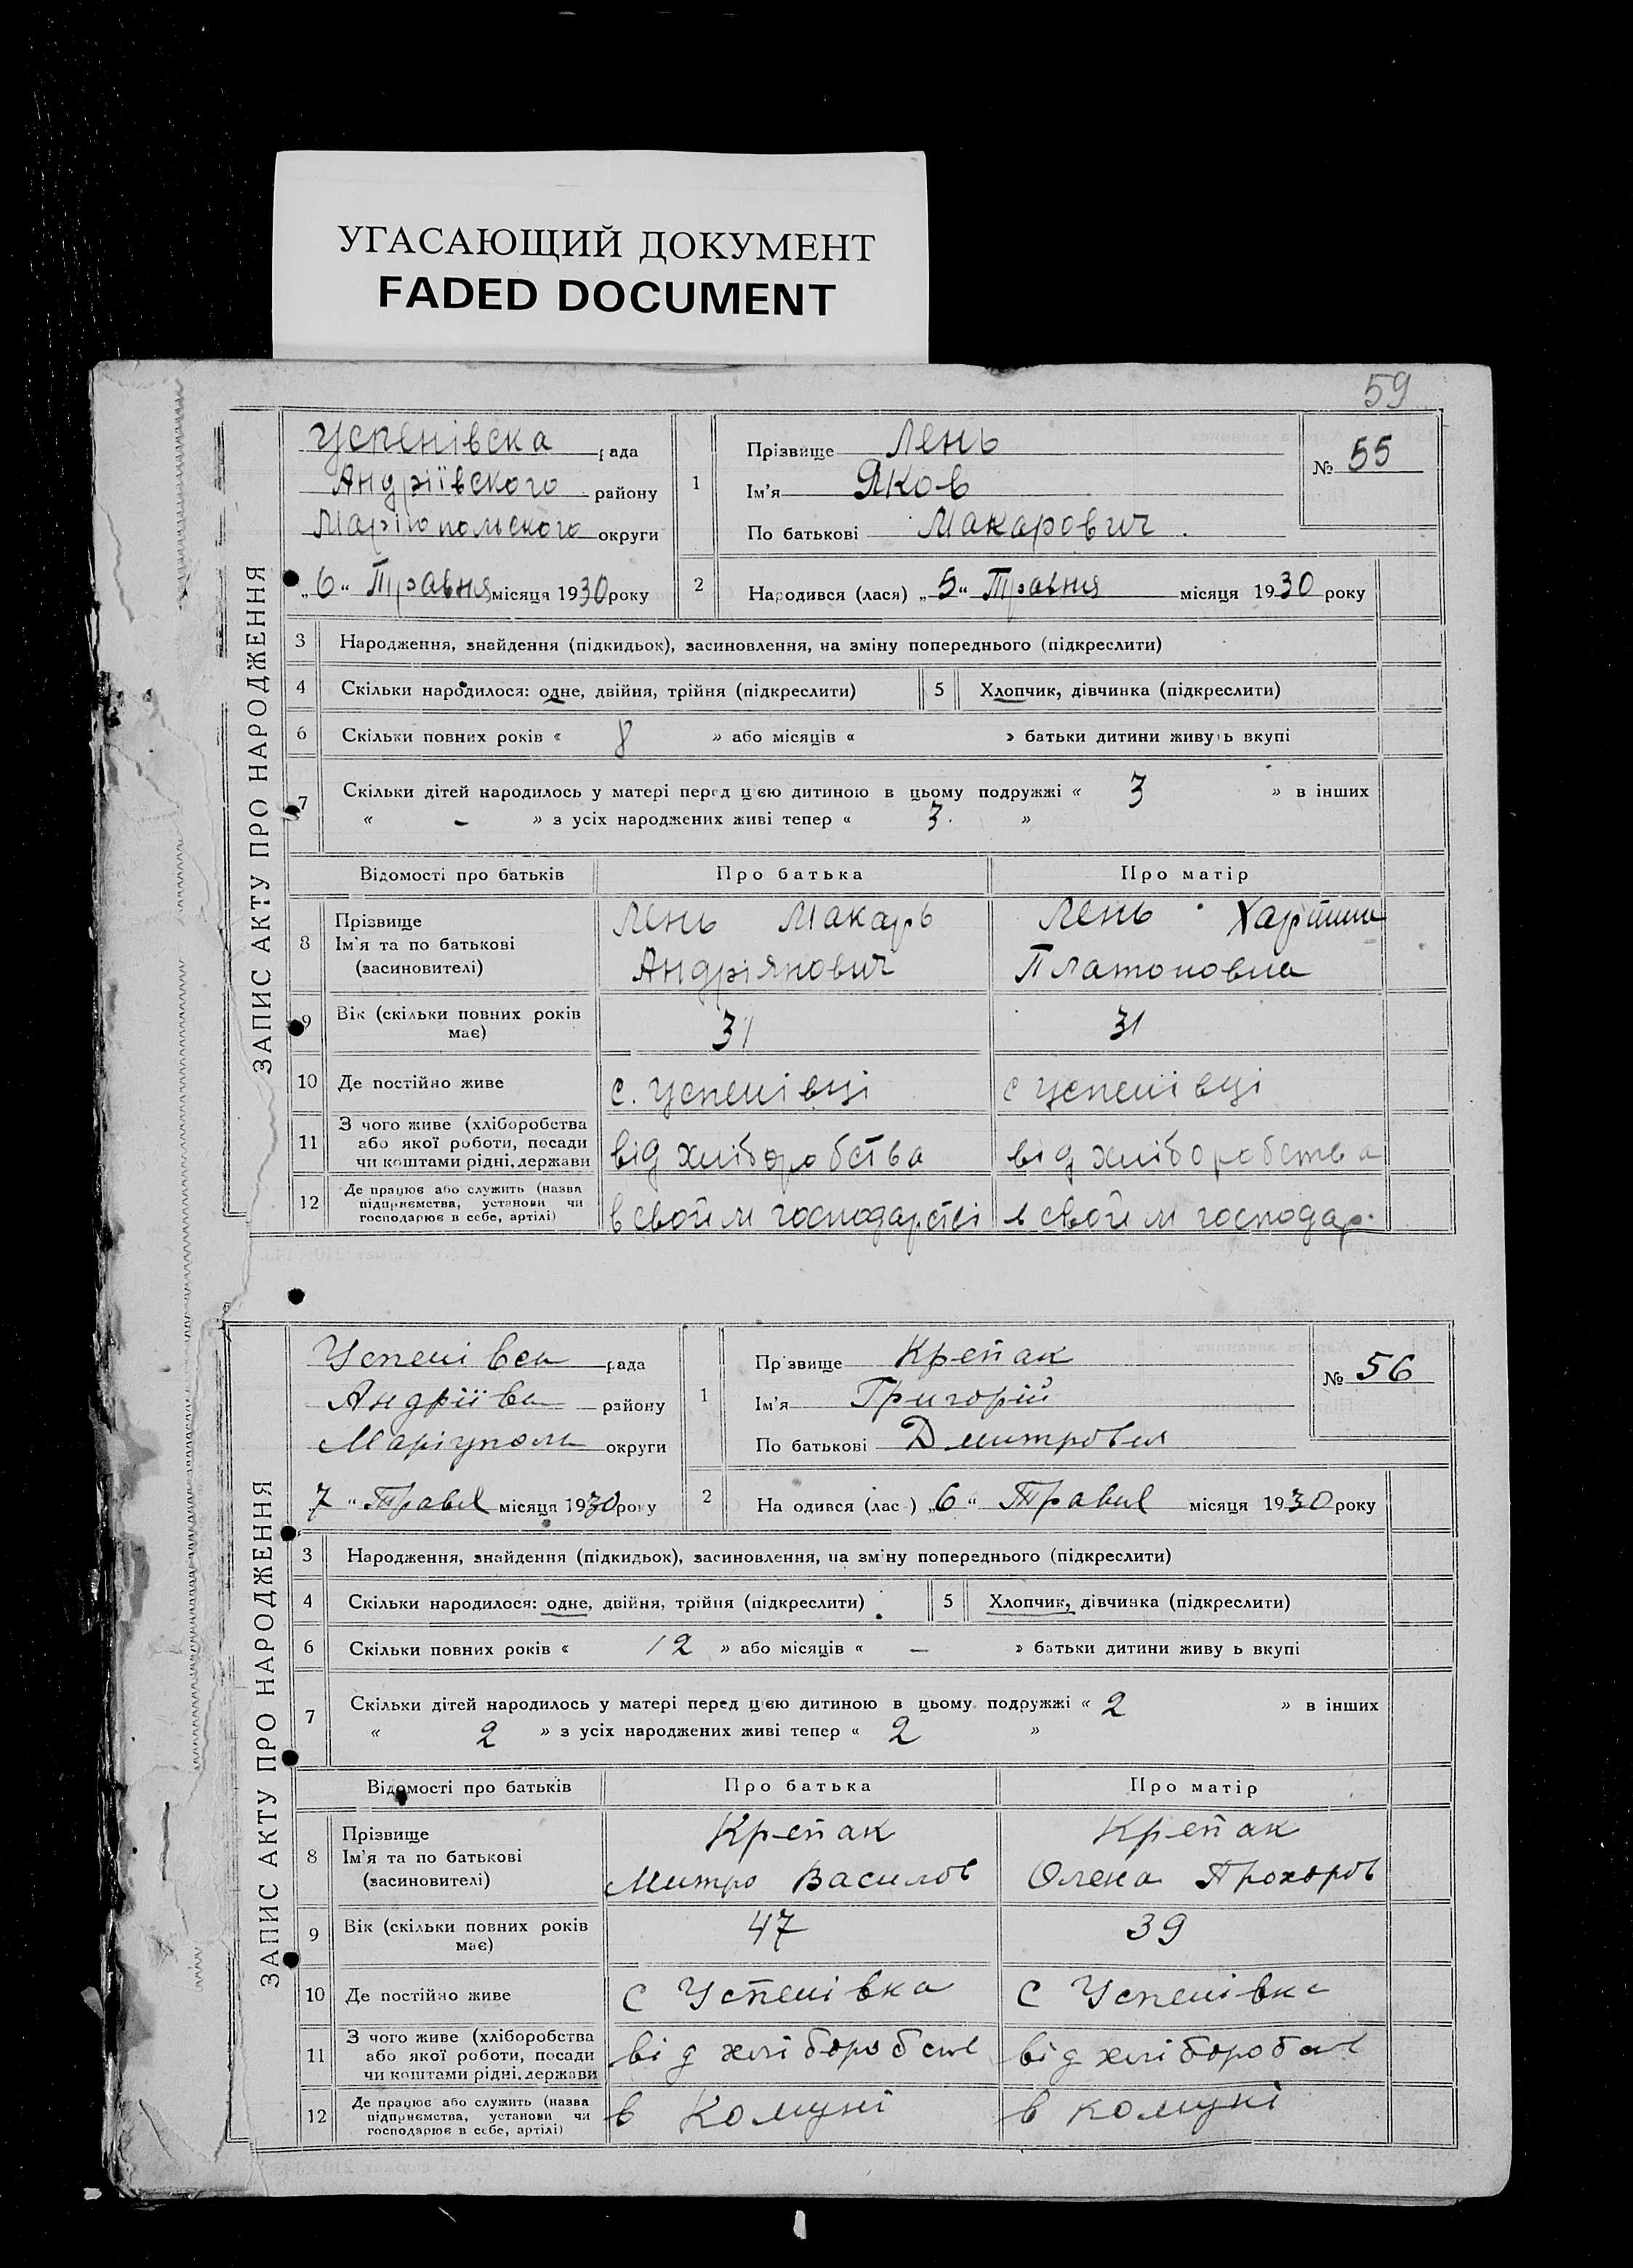 УГАСАЮЩИЙ ДОКУМЕНТ
FADED DOCUMENT
59
ЗАПИС АКТУ ПРО НАРОДЖЕННЯ
Успенівска рада
Андріївского району
Маріюпольского округи
„6“ Травня місяця 1930 року
1 Прізвище Лень
Ім'я Яков
По батькові Макарович
№ 55
2 Народився (лася) „5“ Травня місяця 1930 року
3 Народження, знайдення (підкидьок), засиновлення, на зміну попереднього (підкреслити)
4 Скільки народилося: одне, двійня, трійня (підкреслити) 5 Хлопчик, дівчинка (підкреслити)
6 Скільки повних років « 8 » або місяців « » батьки дитини живуть вкупі
7 Скільки дітей народилось у матері перед цією дитиною в цьому подружжі « 3 » в інших
« - » з усіх народжених живі тепер « 3. »
Відомості про батьків Про батька Про матір
8 Прізвище
Ім'я та по батькові
(засиновителі)
Лень Макарь
Андріянович
Лень
Платоновна
9 Вік (скільки повних років
має)
31 31
10 Де постійно живе с. Успенівці с Успенівці
11 З чого живе (хліборобства
або якої роботи, посади
чи коштами рідні, держави
від хліборобства від хліборобства
12 Де працює або служить (назва
підприємства, установи чи
господарює в себе, артілі)
в своїм господарстві в своїм господар.
ЗАПИС АКТУ ПРО НАРОДЖЕННЯ
Успенівск рада
Андріївск району
Маріуполь округи
7 “ Травня місяця 1930 року
1 Прізвище Крепак
Ім'я Григорій
По батькові Дмитрович
№ 56
2 Народився (лас ) „6“ Травня місяця 1930 року
3 Народження, знайдення (підкидьок), засиновлення, на зміну попереднього (підкреслити)
4 Скільки народилося: одне, двійня, трійня (підкреслити) 5 Хлопчик, дівчинка (підкреслити)
6 Скільки повних років « 12 » або місяців « — » батьки дитини живу ь вкупі
7 Скільки дітей народилось у матері перед цією дитиною в цьому подружжі « 2 » в інших
« 2 » з усіх народжених живі тепер « 2 »
Відомості про батьків Про батька Про матір
8 Прізвище
Ім'я та по батькові
(засиновителі)
Крепак
Митро Василов
Крепак
Олена Прохоров
9 Вік (скільки повних років
має)
47 39
10 Де постійно живе с Успенівка с Успенівка
11 З чого живе (хліборобства
або якої роботи, посади
чи коштами рідні, держави
від хліборобств від хліборобств
12 Де працює або служить (назва
підприємства, установи чи
господарює в себе, артілі)
в Комуні в комуні